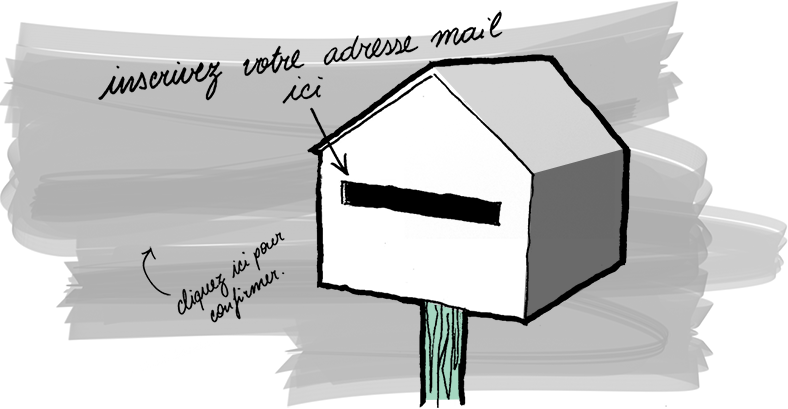 inscrivez votre adresse mail
ici
cliquez ici pour
confirmer.